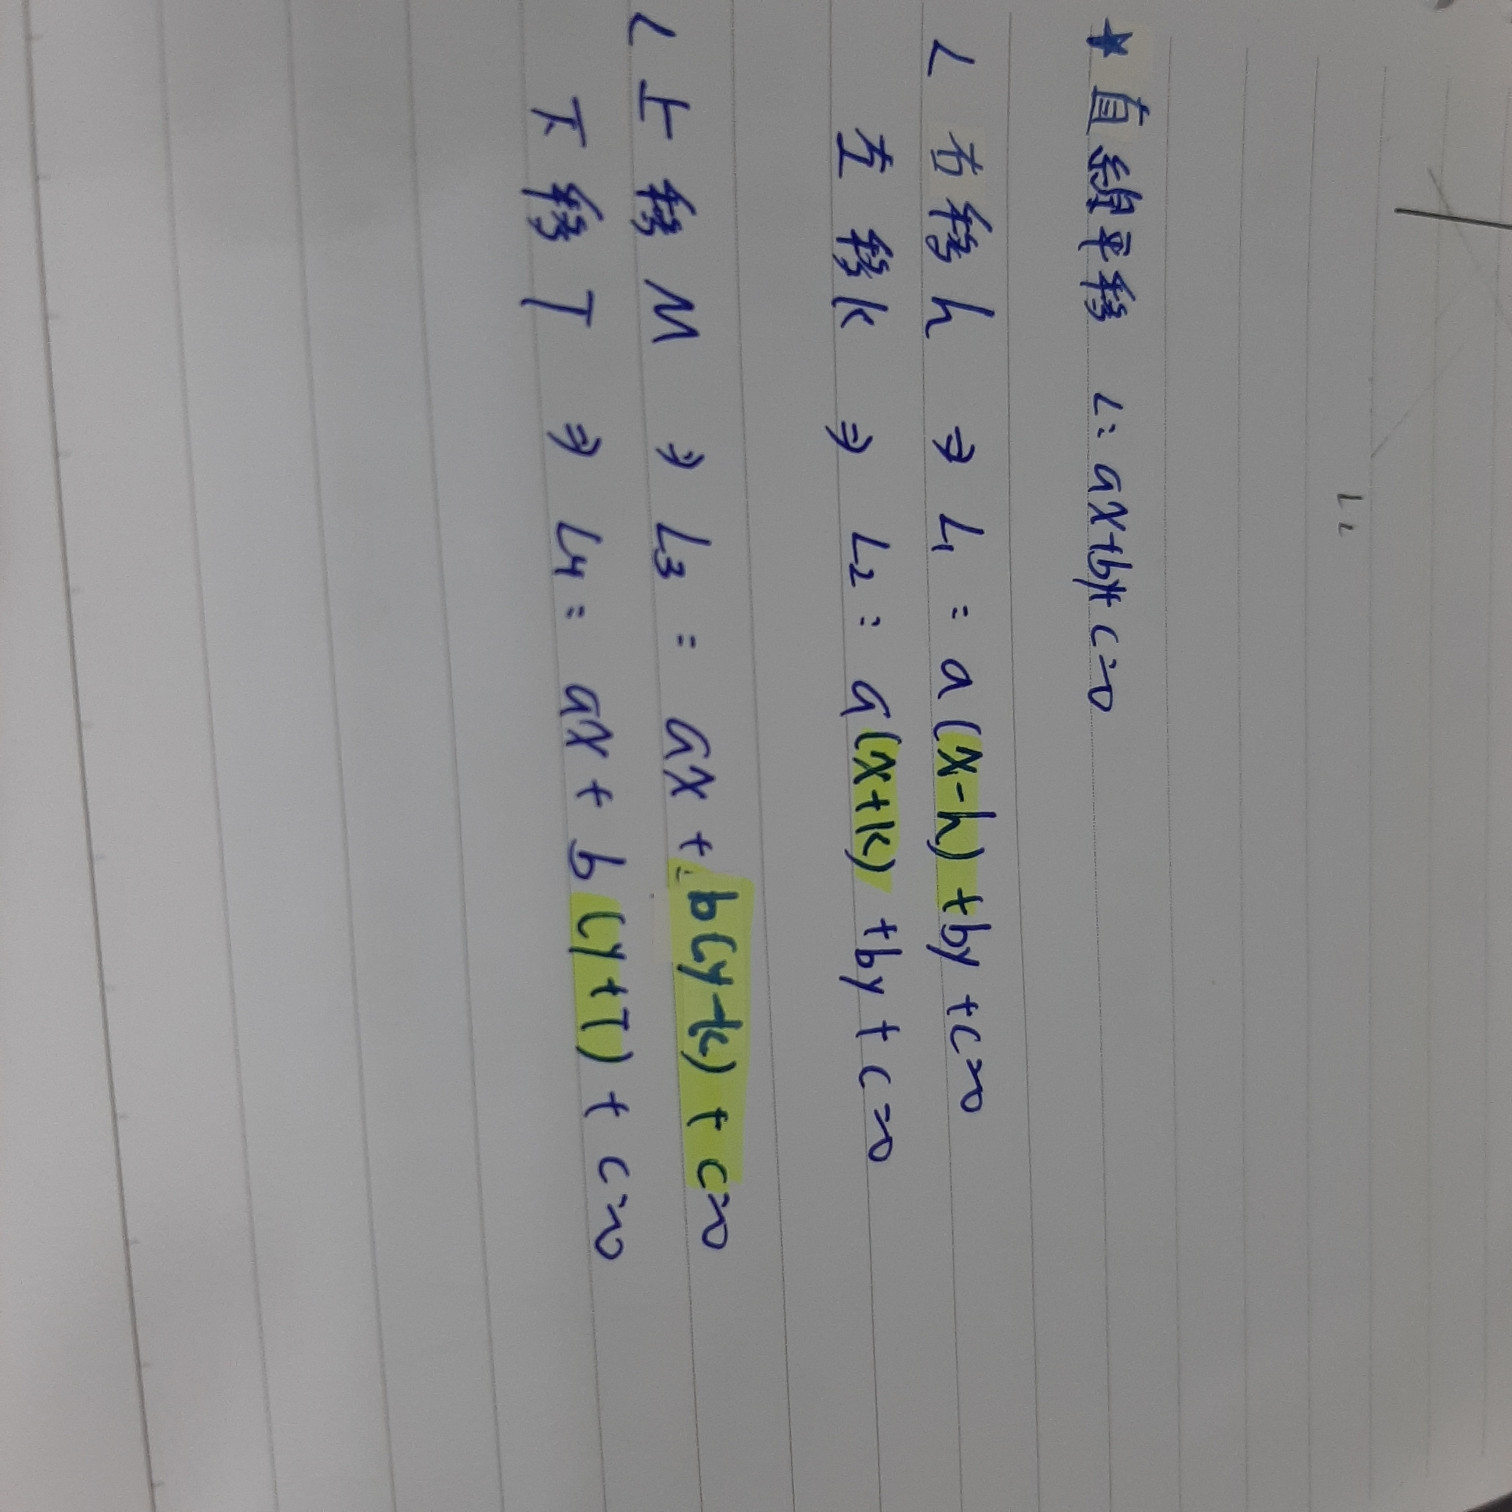 L2
★直線平移 L: ax+by+c=0
L 右移 h ⇒ L1 : a(x-h)+by+c=0
左移 k ⇒ L2 : a(x+k)+by+c=0
L 上移 M ⇒ L3 : ax+b(y-k)+c=0
下移 T ⇒ L4 : ax+b(y+T)+c=0